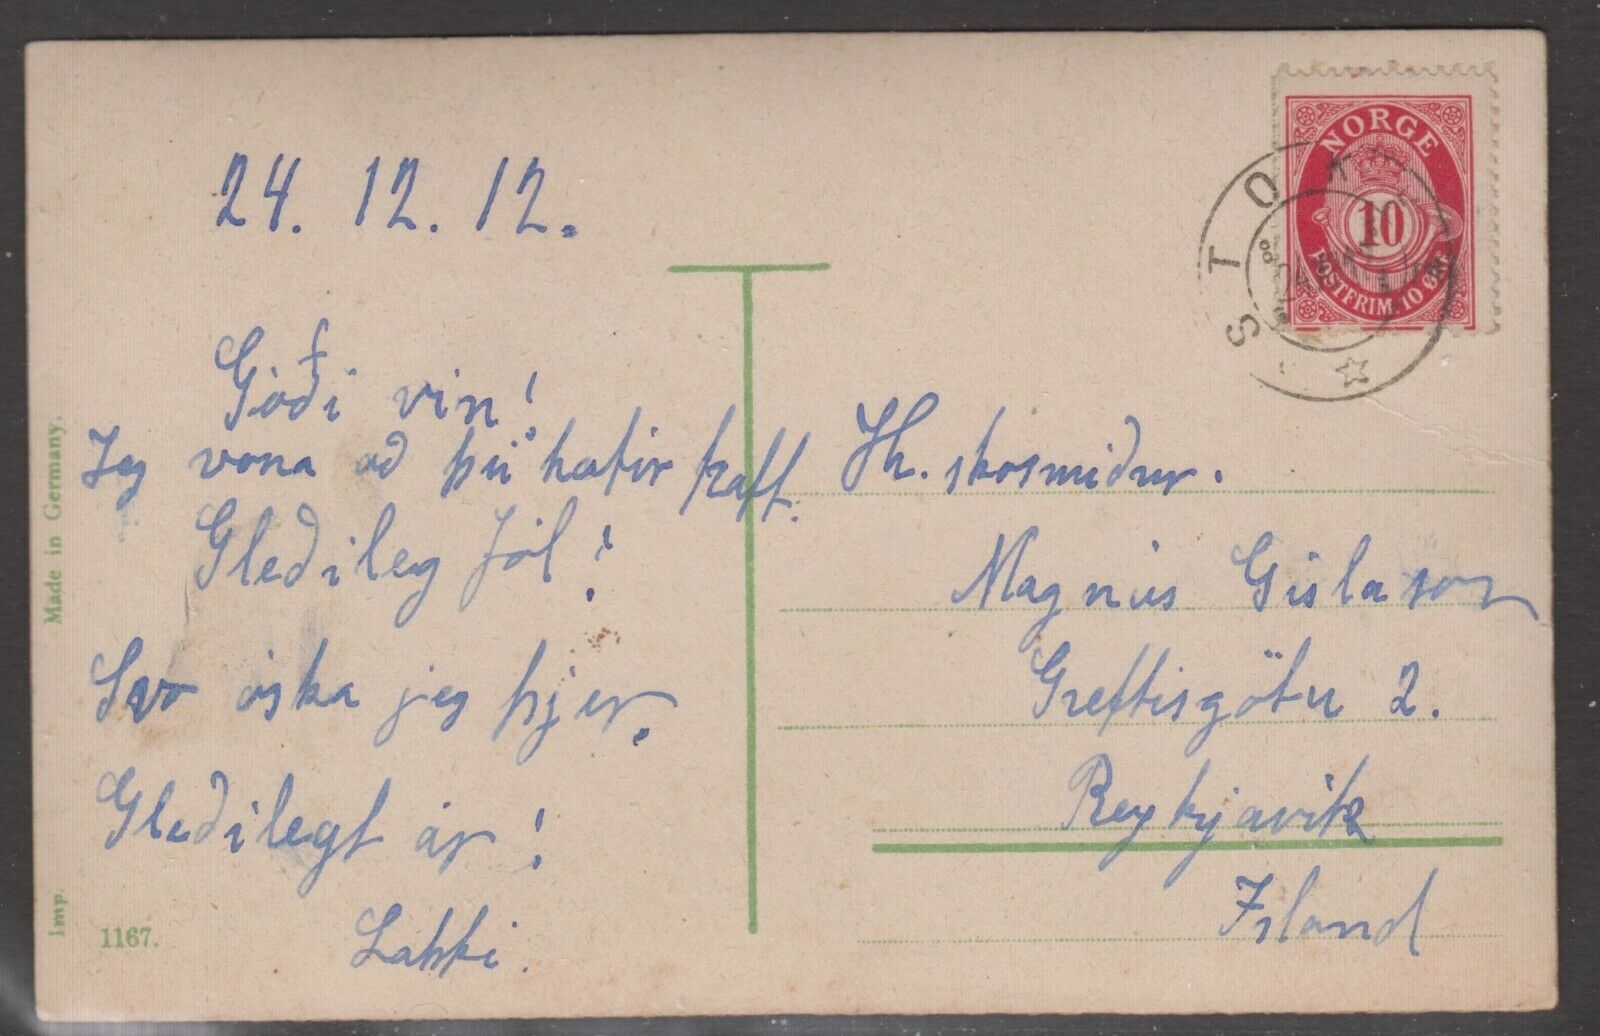 24. 12. 12.
Góði vin!
Jeg vona að þú hafir haft
Gleðileg Jól!
Svo óska jeg þjer.
Gleðilegt ár!
Lakki.
Hr. skósmiður.
Magnús Gíslason
Grettisgötu 2.
Reykjavik
Island
NORGE
10
POSTFRIM. 10 ØRE
STOK
24
Made in Germany.
Imp.
1167.